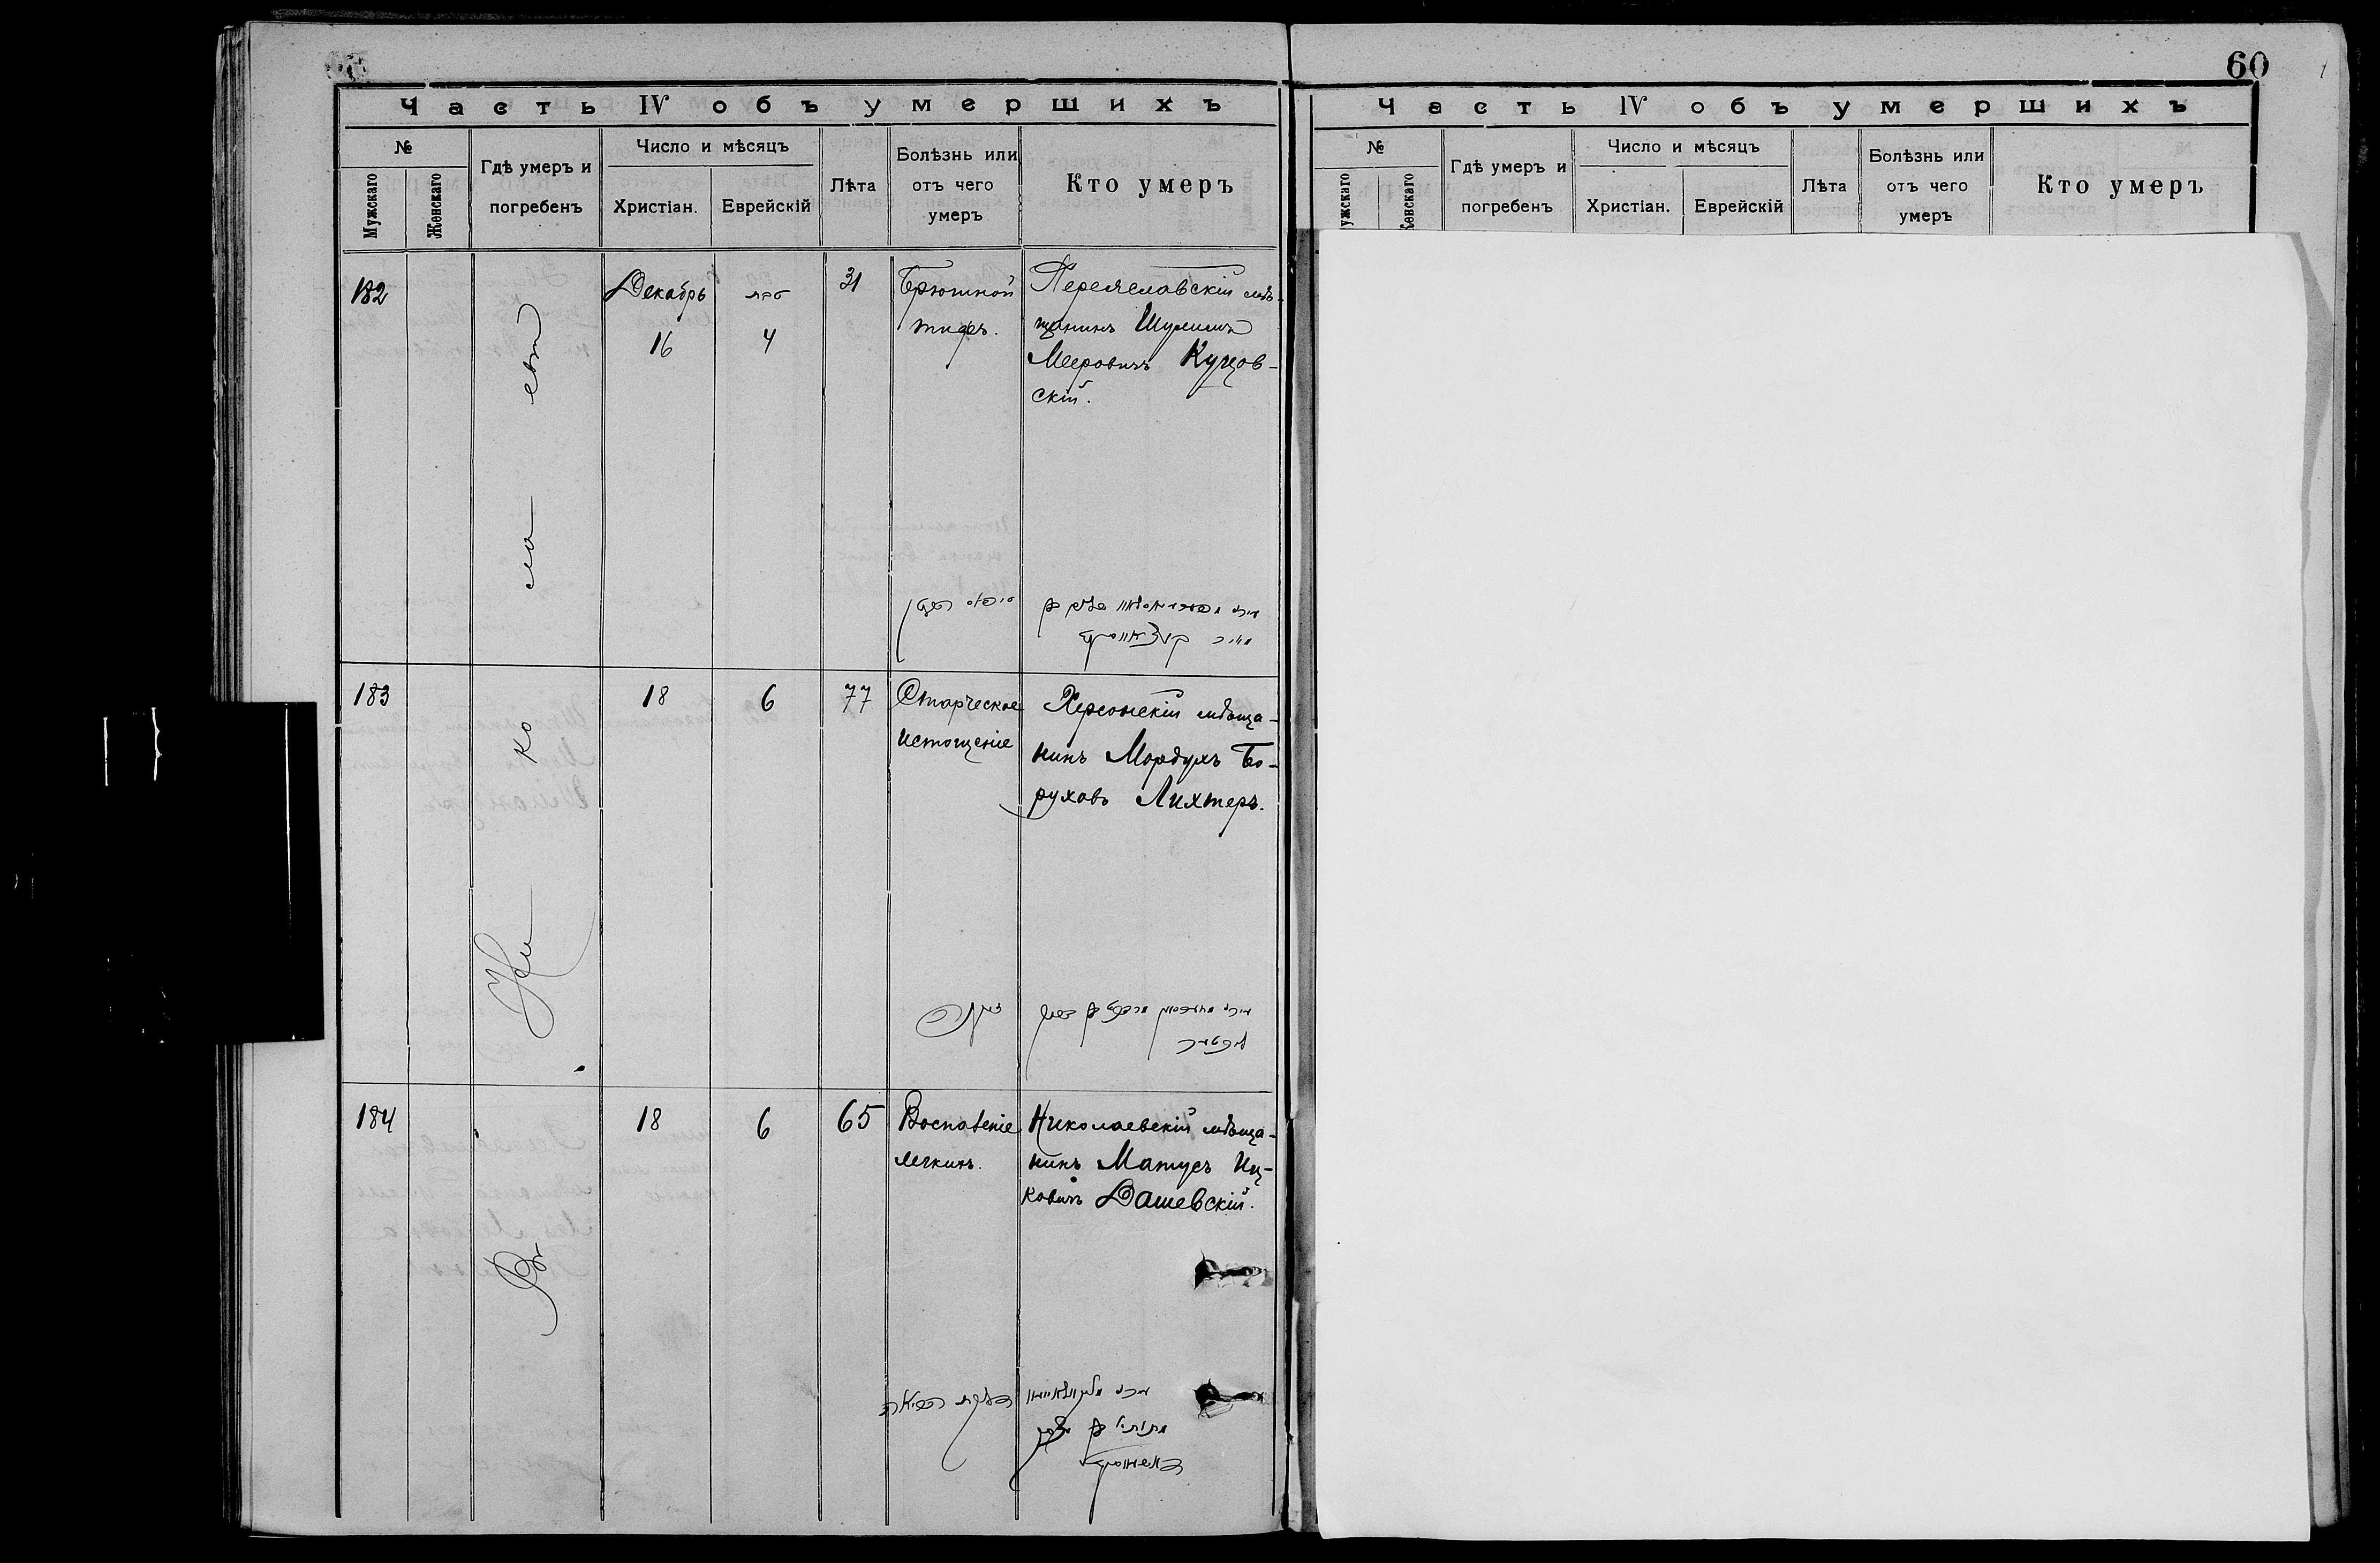 60
Часть IV объ умершихъ
№
Мужскаго
Женскаго
Гдѣ умеръ и
погребенъ
Число и мѣсяцъ
Христіан.
Еврейскій
Лѣта
Болѣзнь или
отъ чего
умеръ
Кто умеръ
182
Декабрь
16
4
31
Брюшной
тифъ.
Переяславскій мѣ-
щанинъ Шулимъ
Мееровичъ Куцов-
скій.
183
18
6
77
Старческое
истощеніе
Херсонскій мѣща-
нинъ Мордухъ Бо-
руховъ Лихтеръ.
184
18
6
65
Воспаленіе
легкихъ.
Николаевскій мѣща-
нинъ Матусъ Иц-
ковичъ Дашевскій.
Въ Николаевѣ
Часть IV объ умершихъ
№
ужскаго
Женскаго
Гдѣ умеръ и
погребенъ
Число и мѣсяцъ
Христіан.
Еврейскій
Лѣта
Болѣзнь или
отъ чего
умеръ
Кто умеръ